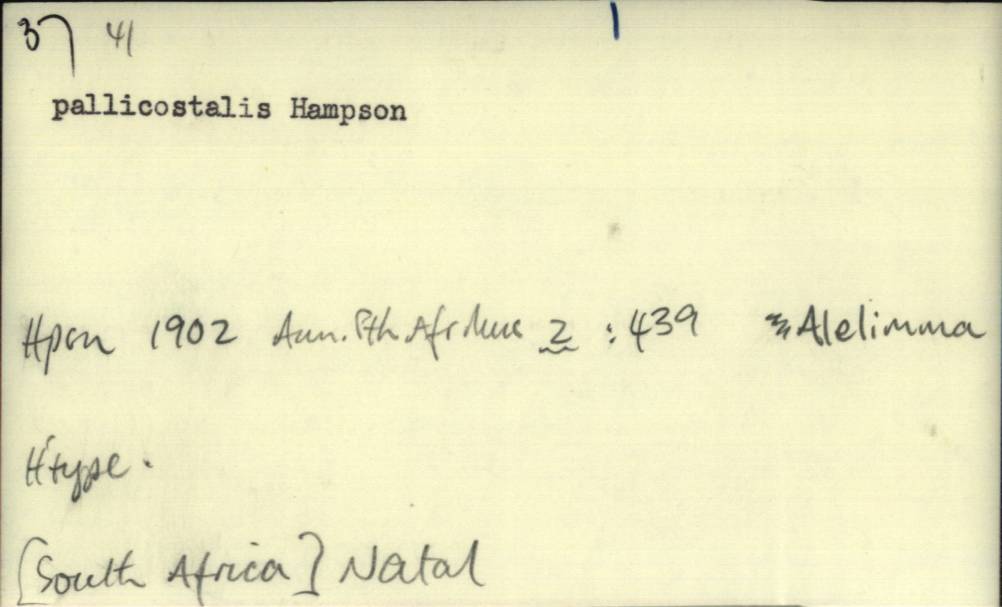 37 41
pallicostalis Hampson
Hpsn 1902 Ann. Sth Afr Mus 2 : 439 Alelimma
H'type.
[South Africa] Natal